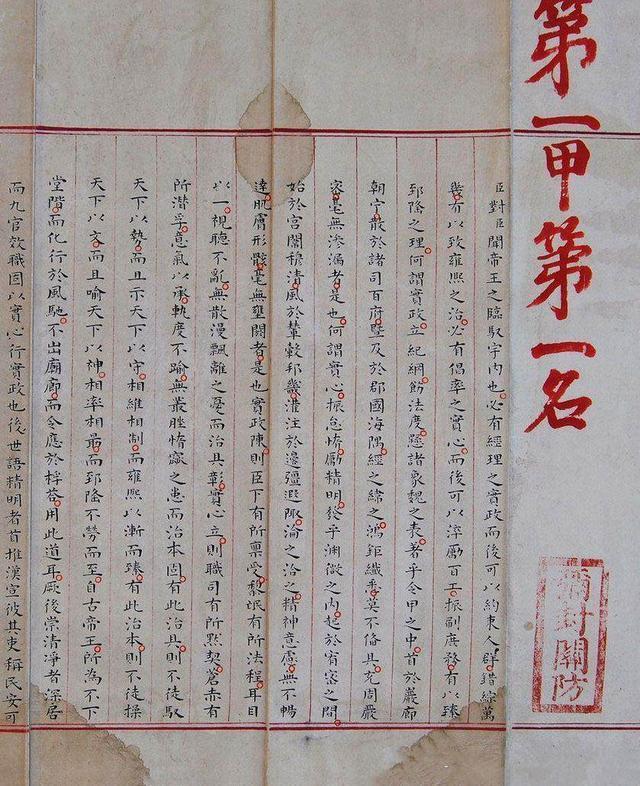 第一甲第一名
彌封關防
臣對臣聞帝王之臨馭宇內也必有經理之實政而後可以約束人群錯綜萬
幾有以致雍熙之治必有倡率之實心而後可以淬勵百工振刷庶務有以臻
郅隆之理何謂實政立紀綱飭法度懸諸象魏之表著乎令甲之中首於巖廊
朝宁散於諸司百府暨及於郡國海隅經之緯之鴻鉅纖悉莫不備具充周嚴
密毫無滲漏者是也何謂實心振怠惰勵精明發乎淵微之內起於宥密之間
始於宮闈穆清風於輦轂邦畿灌注於邊疆遐陬淪之洽之精神意慮無不暢
達肌膚形骸毫無壅閼者是也實政陳則臣下有所稟受黎氓有所法程耳目
以一視聽不亂無散漫飄離之憂而治具彰實心立則職司有所默契蒼赤有
所潛孚意氣以承軌度不踰無叢脞惰窳之患而治本固有此治具則不徒馭
天下以勢而且示天下以守相維相制而雍熙以漸而臻有此治本則不徒操
天下以文而且喻天下以神相率相朂而郅隆不勞而至自古帝王所為不下
堂階而化行於風馳不出廟廊而令應於桴荅用此道耳厥後崇清淨者深居
而九官效職固以實心行實政也後世語精明者首推漢宣彼其吏稱民安可